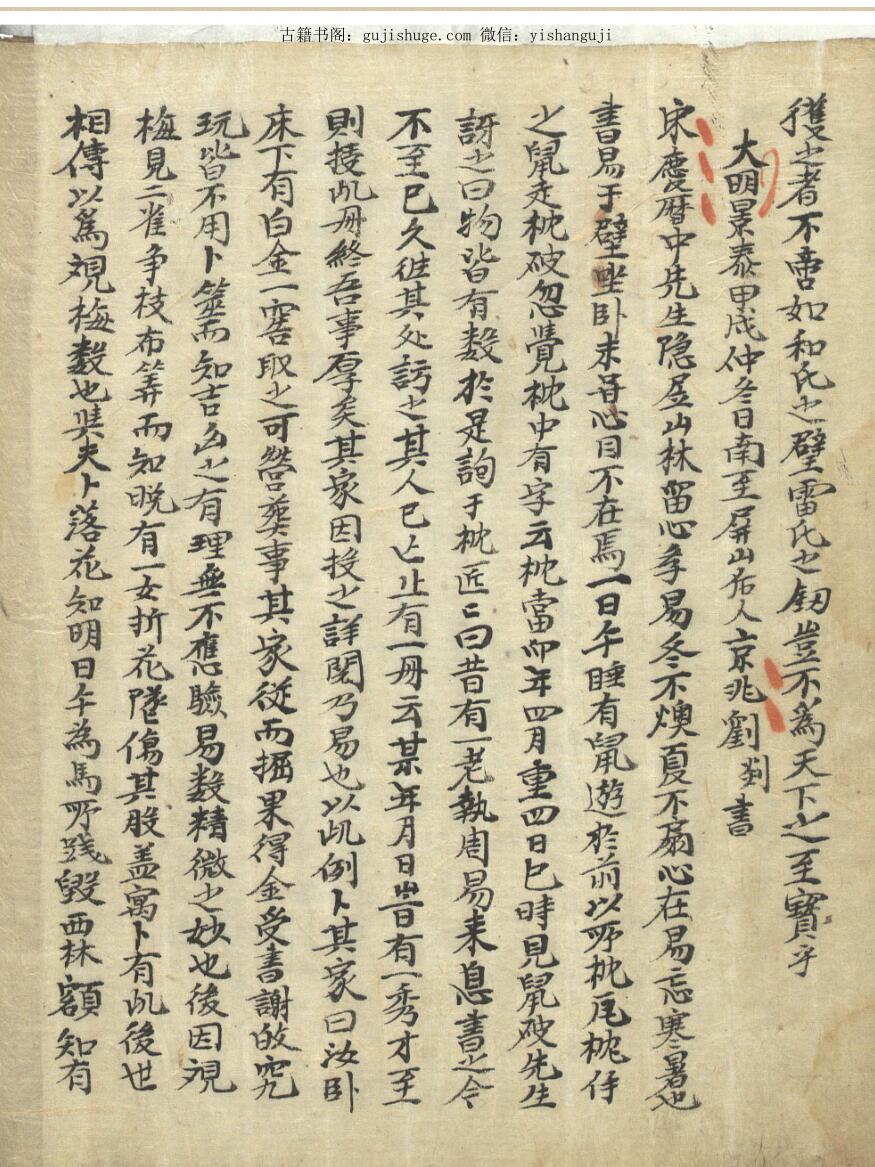 古籍书阁：gujishuge.com 微信：yishanguji
獲之者不啻如和氏之璧雷氏之劔豈不為天下之至寶乎
大明景泰甲戌仲冬日南至屏山居人京兆劉剡書
宋慶曆中先生隐居山林留心孝易冬不燠夏不扇心在易忘寒暑也
書易于壁坐卧未甞心目不在焉一日午睡有鼠遊於前以所枕瓦枕
之鼠走枕破忽覺枕中有字云枕當卯年四月重四日巳時見鼠破先生
訝之曰物皆有数於是詢于枕匠匕曰昔有一老執周易来息書之令
不至已久徃其处訪之其人已亡止有一册云某年月日旹有一秀才至
則授此册終吾事厚矣其家因授之詳閱乃易也以此例卜其家曰汝卧
床下有白金一窖取之可營葬事其家從而掘果得金受書謝
玩皆不用卜筮而知吉凶之有理無不應驗易数精微之妙也後因視
梅見二雀争枝布筭而知晚有一女折花墜傷其股盖寓卜有此後世
相傳以為視梅数也與夫卜落花知明日午為馬所践毀西林額知有